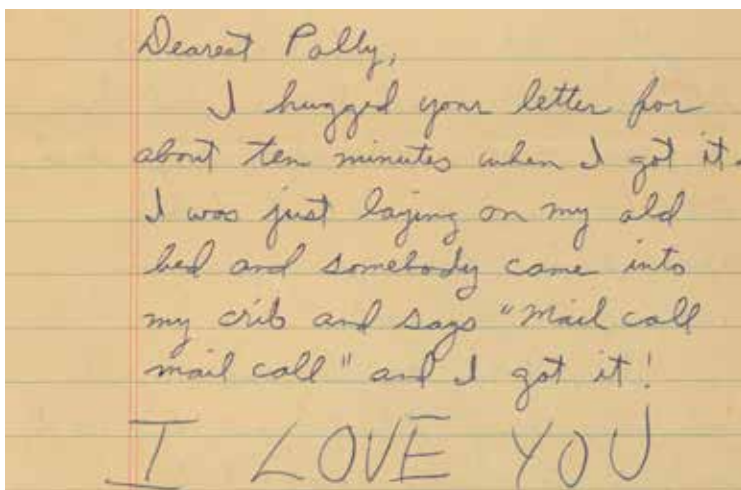 Dearest Polly,
I hugged your letter for
about ten minutes when I got it.
I was just laying on my old
bed and somebody came into
my crib and says "Mail call
mail call" and I got it!
I LOVE YOU